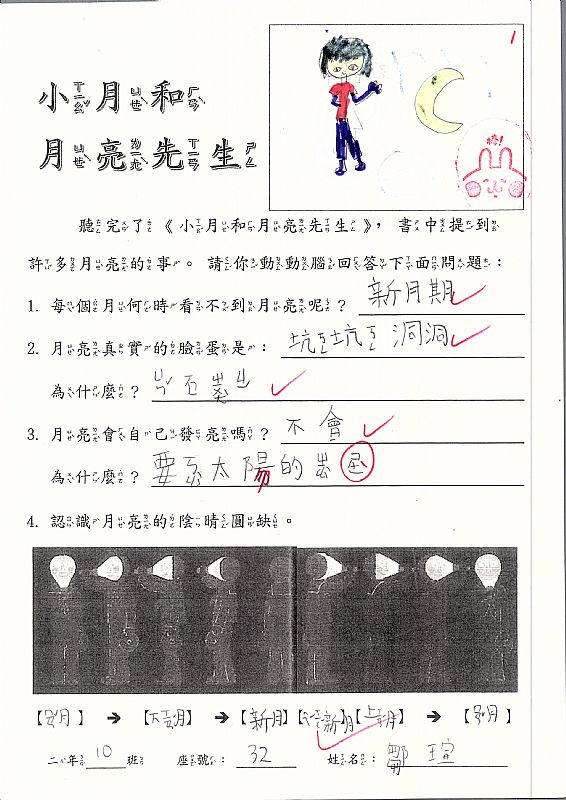 小月和
月亮先生
1
棒!
聽完了《小月和月亮先生》，書中提到
許多月亮的事。請你動動腦回答下面問題：
1. 每個月何時看不到月亮呢？新月期
2. 月亮真實的臉蛋是：坑坑洞洞
為什麼？
3. 月亮會自己發亮嗎？不會
為什麼？要 太陽的
4. 認識月亮的陰晴圓缺。
【月】→【月】→【新月】【新月】【上月】→【月】
二年10班 座號：32 姓名：鄒瑄